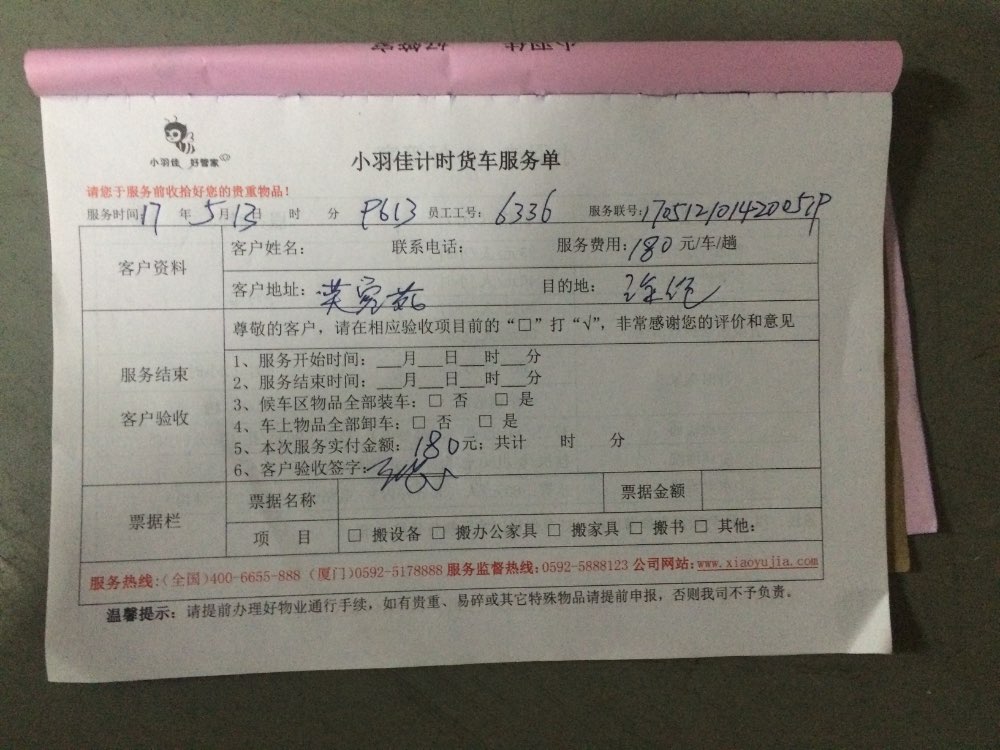 小羽佳 好管家
小羽佳 好管家
小羽佳计时货车服务单
请您于服务前收拾好您的贵重物品!
服务时间:17 年 5月13日 时 分 P613 员工工号: 6336 服务联号:
客户资料
客户姓名: 联系电话: 服务费用:180元/车/趟
客户地址: 目的地:
服务结束
客户验收
尊敬的客户,请在相应验收项目前的“□”打“√”,非常感谢您的评价和意见
1、服务开始时间:___月___日___时___分
2、服务结束时间:___月___日___时___分
3、候车区物品全部装车:□ 否 □ 是
4、车上物品全部卸车:□ 否 □ 是
5、本次服务实付金额:180元;共计 时 分
6、客户验收签字:
票据栏
票据名称 票据金额
项 目 □ 搬设备 □ 搬办公家具 □ 搬家具 □ 搬书 □ 其他:
服务热线:(全国)400-6655-888 (厦门)0592-5178888 服务监督热线:0592-5888123 公司网站:www.xiaoyujia.com
温馨提示:请提前办理好物业通行手续,如有贵重、易碎或其它特殊物品请提前申报,否则我司不予负责。